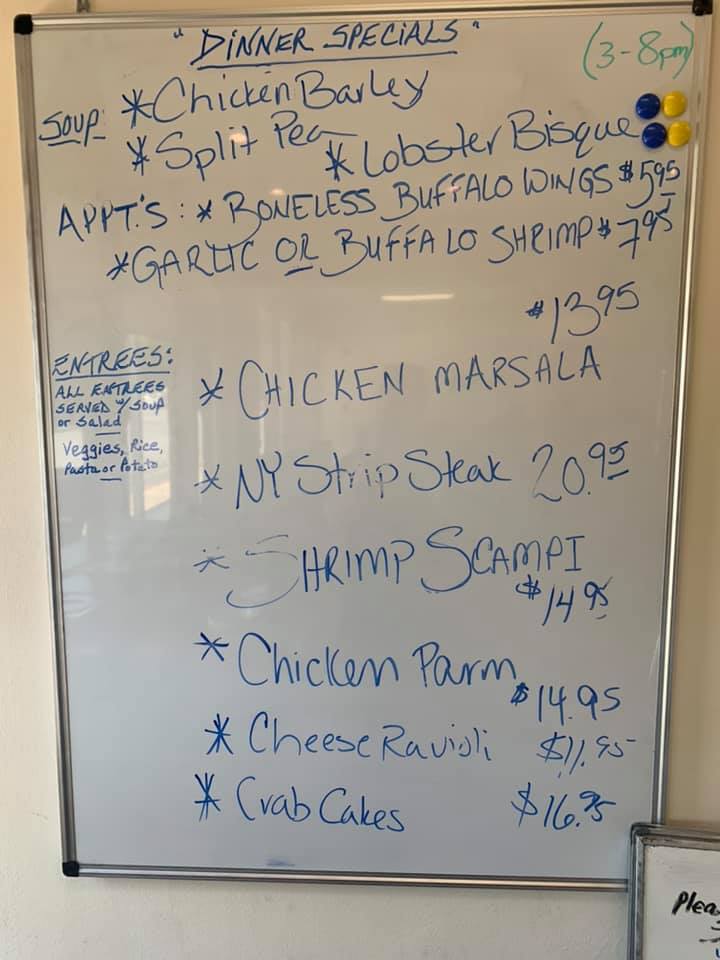 "DINNER SPECIALS"
(3-8pm)
SOUP: *Chicken Barley
*Split Pea *Lobster Bisque
APPT.'S: * BONELESS BUFFALO WINGS $5.95
*GARLIC OR BUFFALO SHRIMP $7.95
$13.95
ENTREES:
ALL ENTREES
SERVED w/ SOUP
or Salad
Veggies, Rice,
Pasta or Potato
* CHICKEN MARSALA
* NY Strip Steak 20.95
* SHRIMP SCAMPI
$14.95
* Chicken Parm
$14.95
* Cheese Ravioli $11.95
* Crab Cakes $16.95